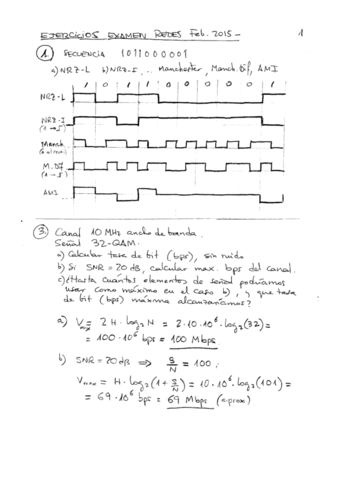 EJERCICIOS EXAMEN REDES Feb. 2015- 1
1. SECUENCIA 1011000001
a) NRZ-L b) NRZ-I, .. Manchester, Manch. Dif, AMI
1 0 1 1 0 0 0 0 0 1
NRZ-L
NRZ-I
Manch
M. Dif
AMI
3. Canal 10 MHz ancho de banda.
Señal 32-QAM.
a) Calcular tasa de bit (bps), sin ruido
b) Si SNR = 20 dB, calcular max. bps del canal.
c) ¿Hasta cuántos elementos de señal podríamos
usar como máximo en el caso b), y que tasa
de bit (bps) máxima alcanzaríamos?
a) Vmax = 2 H · log2 N = 2 · 10 · 10^6 · log2(32) =
= 100 · 10^6 bps = 100 Mbps
b) SNR = 20 dB ⇒ S/N = 100 ;
Vmax = H · log2(1 + S/N) = 10 · 10^6 · log2(101) =
= 69 · 10^6 bps = 69 Mbps (aprox)